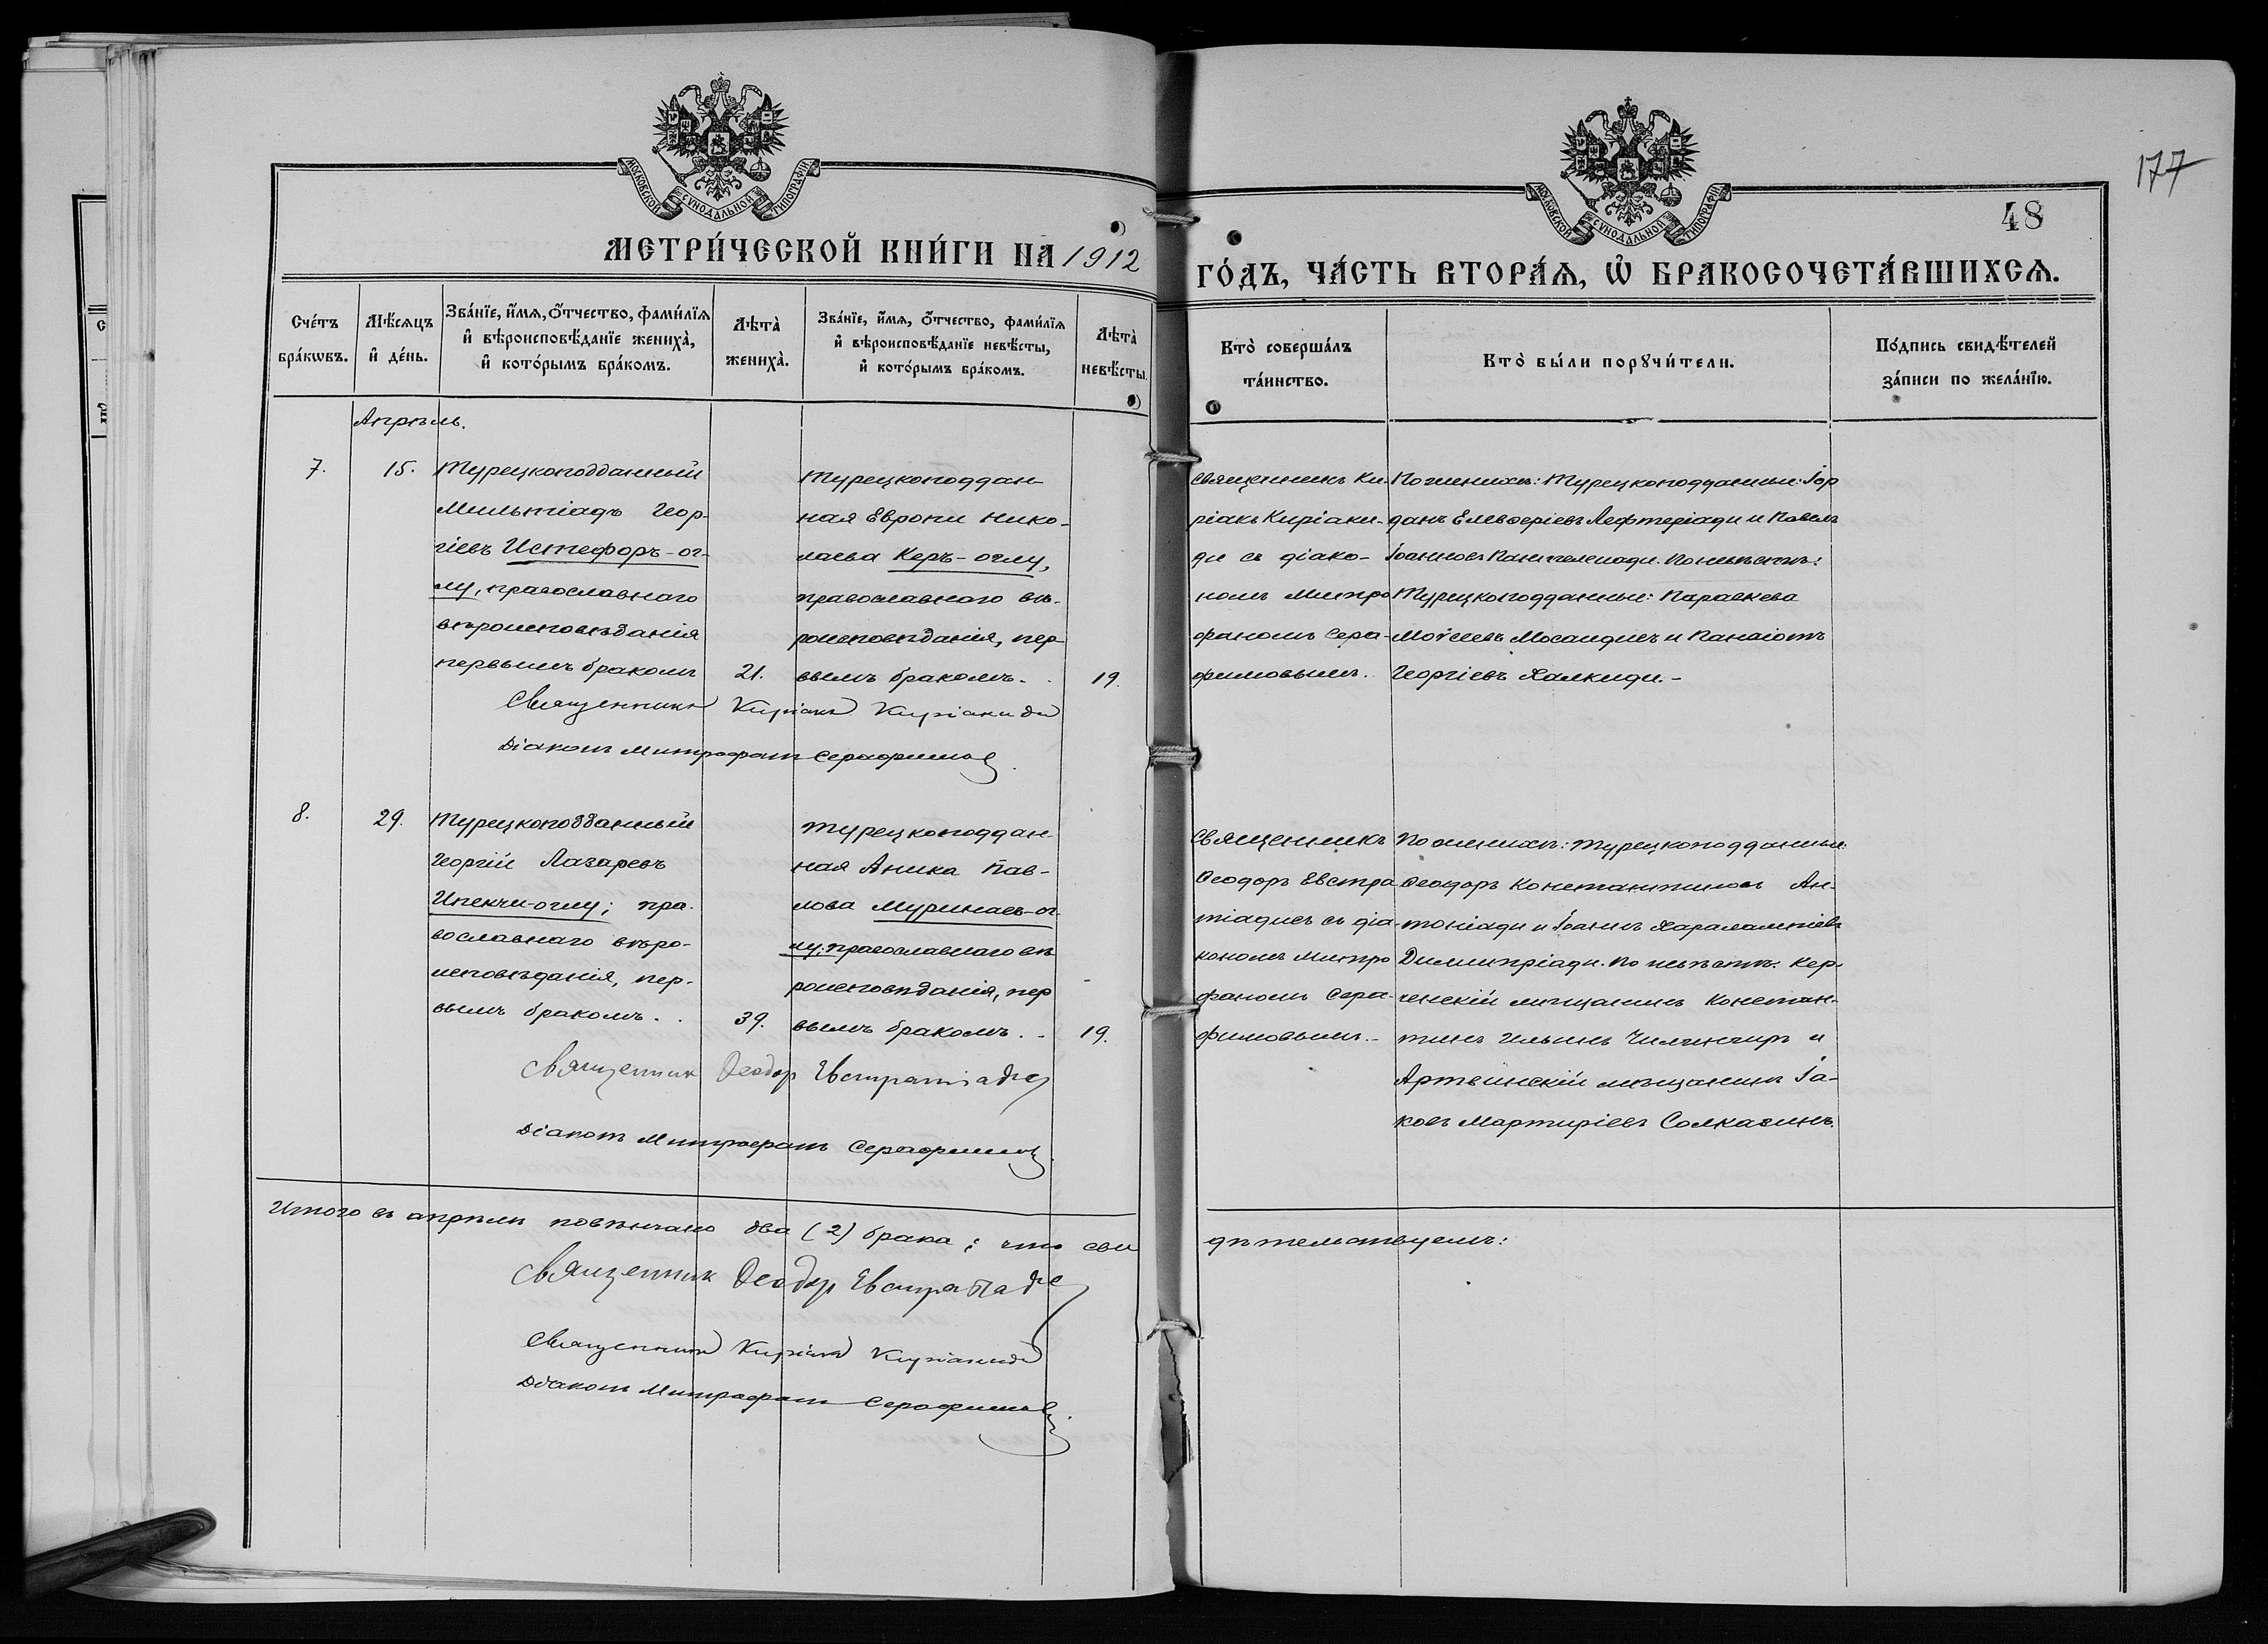 МОСКОВСКОЙ СѴНОДАЛЬНОЙ ТИПОГРАФІИ
МЕТРИ́ЧЕСКОЙ КНИ́ГИ НА 1912
Сче́тъ бра́кѡвъ.
Мѣ́сяцъ и҆ де́нь.
Зва́нїе, и҆́мѧ, ѻ҆́тчество, фами́лїѧ и҆ вѣроисповѣ́данїе жениха̀, и҆ кото́рымъ бра́комъ.
Лѣта̀ жениха̀.
Зва́нїе, и҆́мѧ, ѻ҆́тчество, фами́лїѧ и҆ вѣроисповѣ́данїе невѣ́сты, и҆ кото́рымъ бра́комъ.
Лѣта̀ невѣ́сты.
Апрѣль.
7.
15.
Турецкоподданный
Мильтіадъ Геор-
гіевъ Истефоръ-ог-
лу, православнаго
вѣроисповѣданія
первымъ бракомъ
21.
Турецкоподдан
ная Европи Нико-
лаева Керъ-оглу,
православнаго вѣ-
роисповѣданія, пер-
вымъ бракомъ.
19.
Священникъ Киріакъ Киріакиди
Діаконъ Митрофанъ Серафимовъ.
8.
29.
Турецкоподданный
Георгій Лазаревъ
Ипекчи-оглу; пра-
вославнаго вѣро-
исповѣданія, пер-
вымъ бракомъ.
39.
Турецкоподдан-
ная Аника Пав-
лова Муринаев-ог-
лу; православнаго вѣ
роисповѣданія, пер
вымъ бракомъ.
19.
Священникъ Ѳеодоръ Евстратіадис
Діаконъ Митрофанъ Серафимовъ.
Итого въ апрѣлѣ повѣнчано два (2) брака; что сви
Священник Ѳеодоръ Евстратіадис
Священникъ Киріакъ Киріакиди
Діаконъ Митрофанъ Серафимовъ.
177
48
МОСКОВСКОЙ СѴНОДАЛЬНОЙ ТИПОГРАФІИ
ГО́ДЪ, ЧА́СТЬ ВТОРА́Ѧ, Ѡ҆ БРАКОСОЧЕТА́ВШИХСѦ.
Кто̀ соверша́лъ та́инство.
Кто̀ бы́ли порꙋчи́тели.
По́дпись свидѣ́телей за́писи по жела́нїю.
Священникъ Ки-
ріакъ Киріаки-
ди съ діако-
номъ Митро
фаномъ Сера-
фимовымъ.
По женихѣ: Турецкоподданные: Іор
данъ Елевѳеріевъ Лефтеріади и Павелъ
Іоанновъ Пантелеиади. По невѣстѣ:
Турецкоподданные: Параскева
Моѵсеевъ Мосаидисъ и Панаіотъ
Георгіевъ Халкиди.-
Священникъ
Ѳеодоръ Евстра
тіадисъ съ діа-
кономъ Митро
фаномъ Сера-
фимовымъ.-
По женихѣ: Турецкоподданные:
Ѳеодоръ Константиновъ Ан-
тоніади и Іоаннъ Харалампіевъ
Димитріади. По невѣстѣ: Кер-
ченскій мѣщанинъ Констан-
тинъ Ильинъ Чилингиръ и
Артвинскій мѣщанинъ Іа-
ковъ Мартиріевъ Солказинъ.
дѣтельствуемъ: